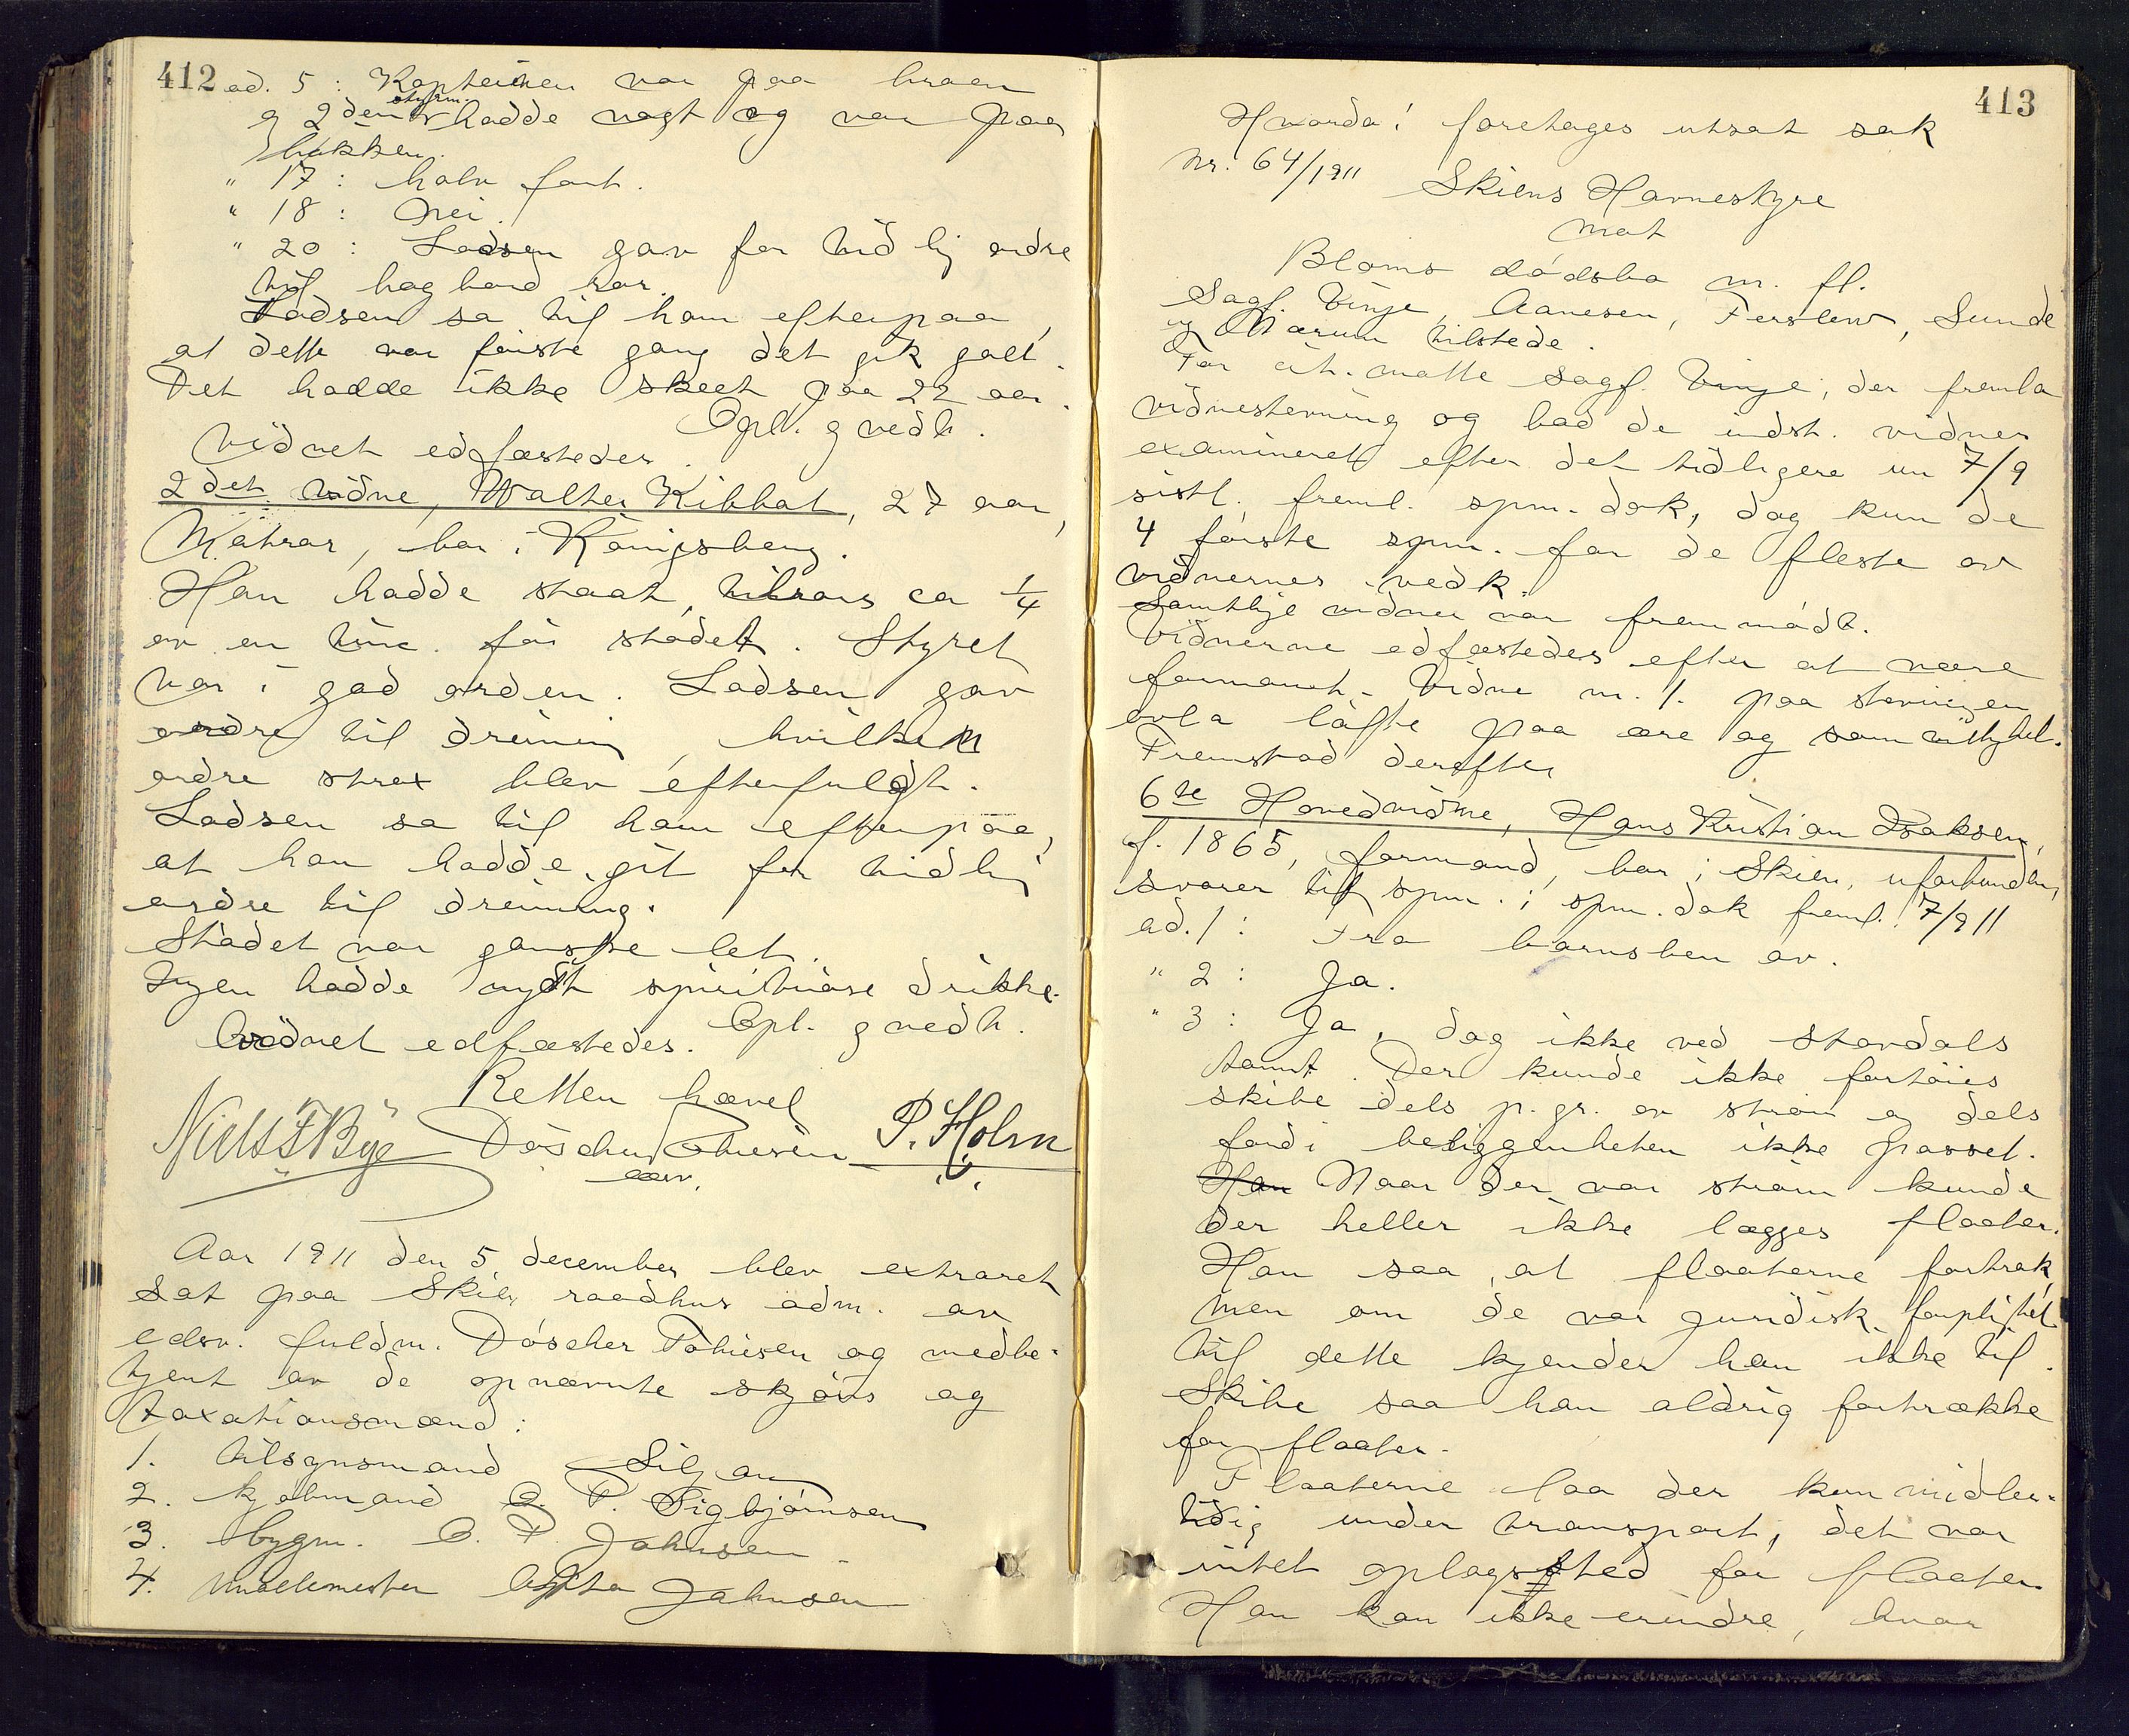 412
ad. 5 : Kapteinen var paa broen
og 2den styrm. hadde vagt og var paa
bakken.
" 17 : halv fart.
" 18 : Nei.
" 20 : Lodsen gav for tidlig ordre
til bagbord ror.
Lodsen sa til ham efterpaa,
at dette var første gang det gik galt.
Det hadde ikke skeet paa 22 aar.
Opl. og vedt.
Vidnet edfæstedes.
2det vidne, Walter Kibbat, 27 aar,
Matros, bor i Königsberg.
Han hadde staat tilrors ca 1/4
av en time før stødet. Styret
var i god orden. Lodsen gav
ordre til dreining, hvilken
ordre strax blev efterfuldgt.
Lodsen sa til ham efterpaa,
at han hadde git for tidlig
ordre til dreining.
Stødet var ganske let.
Ingen hadde nydt spirituøse drikke.
Opl. og vedt.
Vidnet edfæstedes.
Retten hævet
Niels F Bye Döscher Tobiesen P. Holm
csv.
Aar 1911 den 5 december blev extraret
sat paa Skien raadhus adm. av
edsv. fuldm. Döscher Tobiesen og medbe-
tjent av de opnævnte skjøns og
taxationsmænd:
1. tilsynsmand Siljan
2. kjøbmand O. P. Sigbjørnsen
3. bygm. O. P. Johnsen
4. Johnsen
413
Hvorda: foretoges utsat sak
Nr. 64/1911 Skiens Havnestyre
mot
Bloms dødsbo m. fl.
Sagf. Vinje, Aanesen, Ferslew, Lunde
og Mærum tilstede.
For cit. møtte sagf. Vinje, der fremla
vidnestevning og bad de indst. vidner
examineret efter det tidligere un 7/9
sistl. freml. spm. dok, dog kun de
4 første spm. for de fleste av
vidnernes vedk.
Samtlige vidner var fremmødt.
Vidnerne edfæstedes efter at være
formanet. Vidne nr. 1. paa stevningen
avla løfte paa ære og samvittighet.
Fremstod derefter
6te Hovedvidne, Hans Kristian Isaksen,
f. 1865, formand, bor i Skien, uforbunden,
svarer til spm. i spm. dok freml. 7/9 11
ad. 1 : Fra barnsben av.
" 2 : Ja.
" 3 : Ja, dog ikke ved Stordals
tomt. Der kunde ikke fortøies
skibe dels p. gr. av strøm og dels
fordi beliggenheten ikke passet.
Han Naar der var strøm kunde
der heller ikke lægges flaater.
Han saa, at flaaterne fortrak,
men om de var juridisk forpligtet
til dette kjender han ikke til.
Skibe saa han aldrig fortrække
for flaater.
Flaaterne laa der kun midler-
tidig under transport, det var
intet oplagssted for flaater.
Han kan ikke erindre, hvor